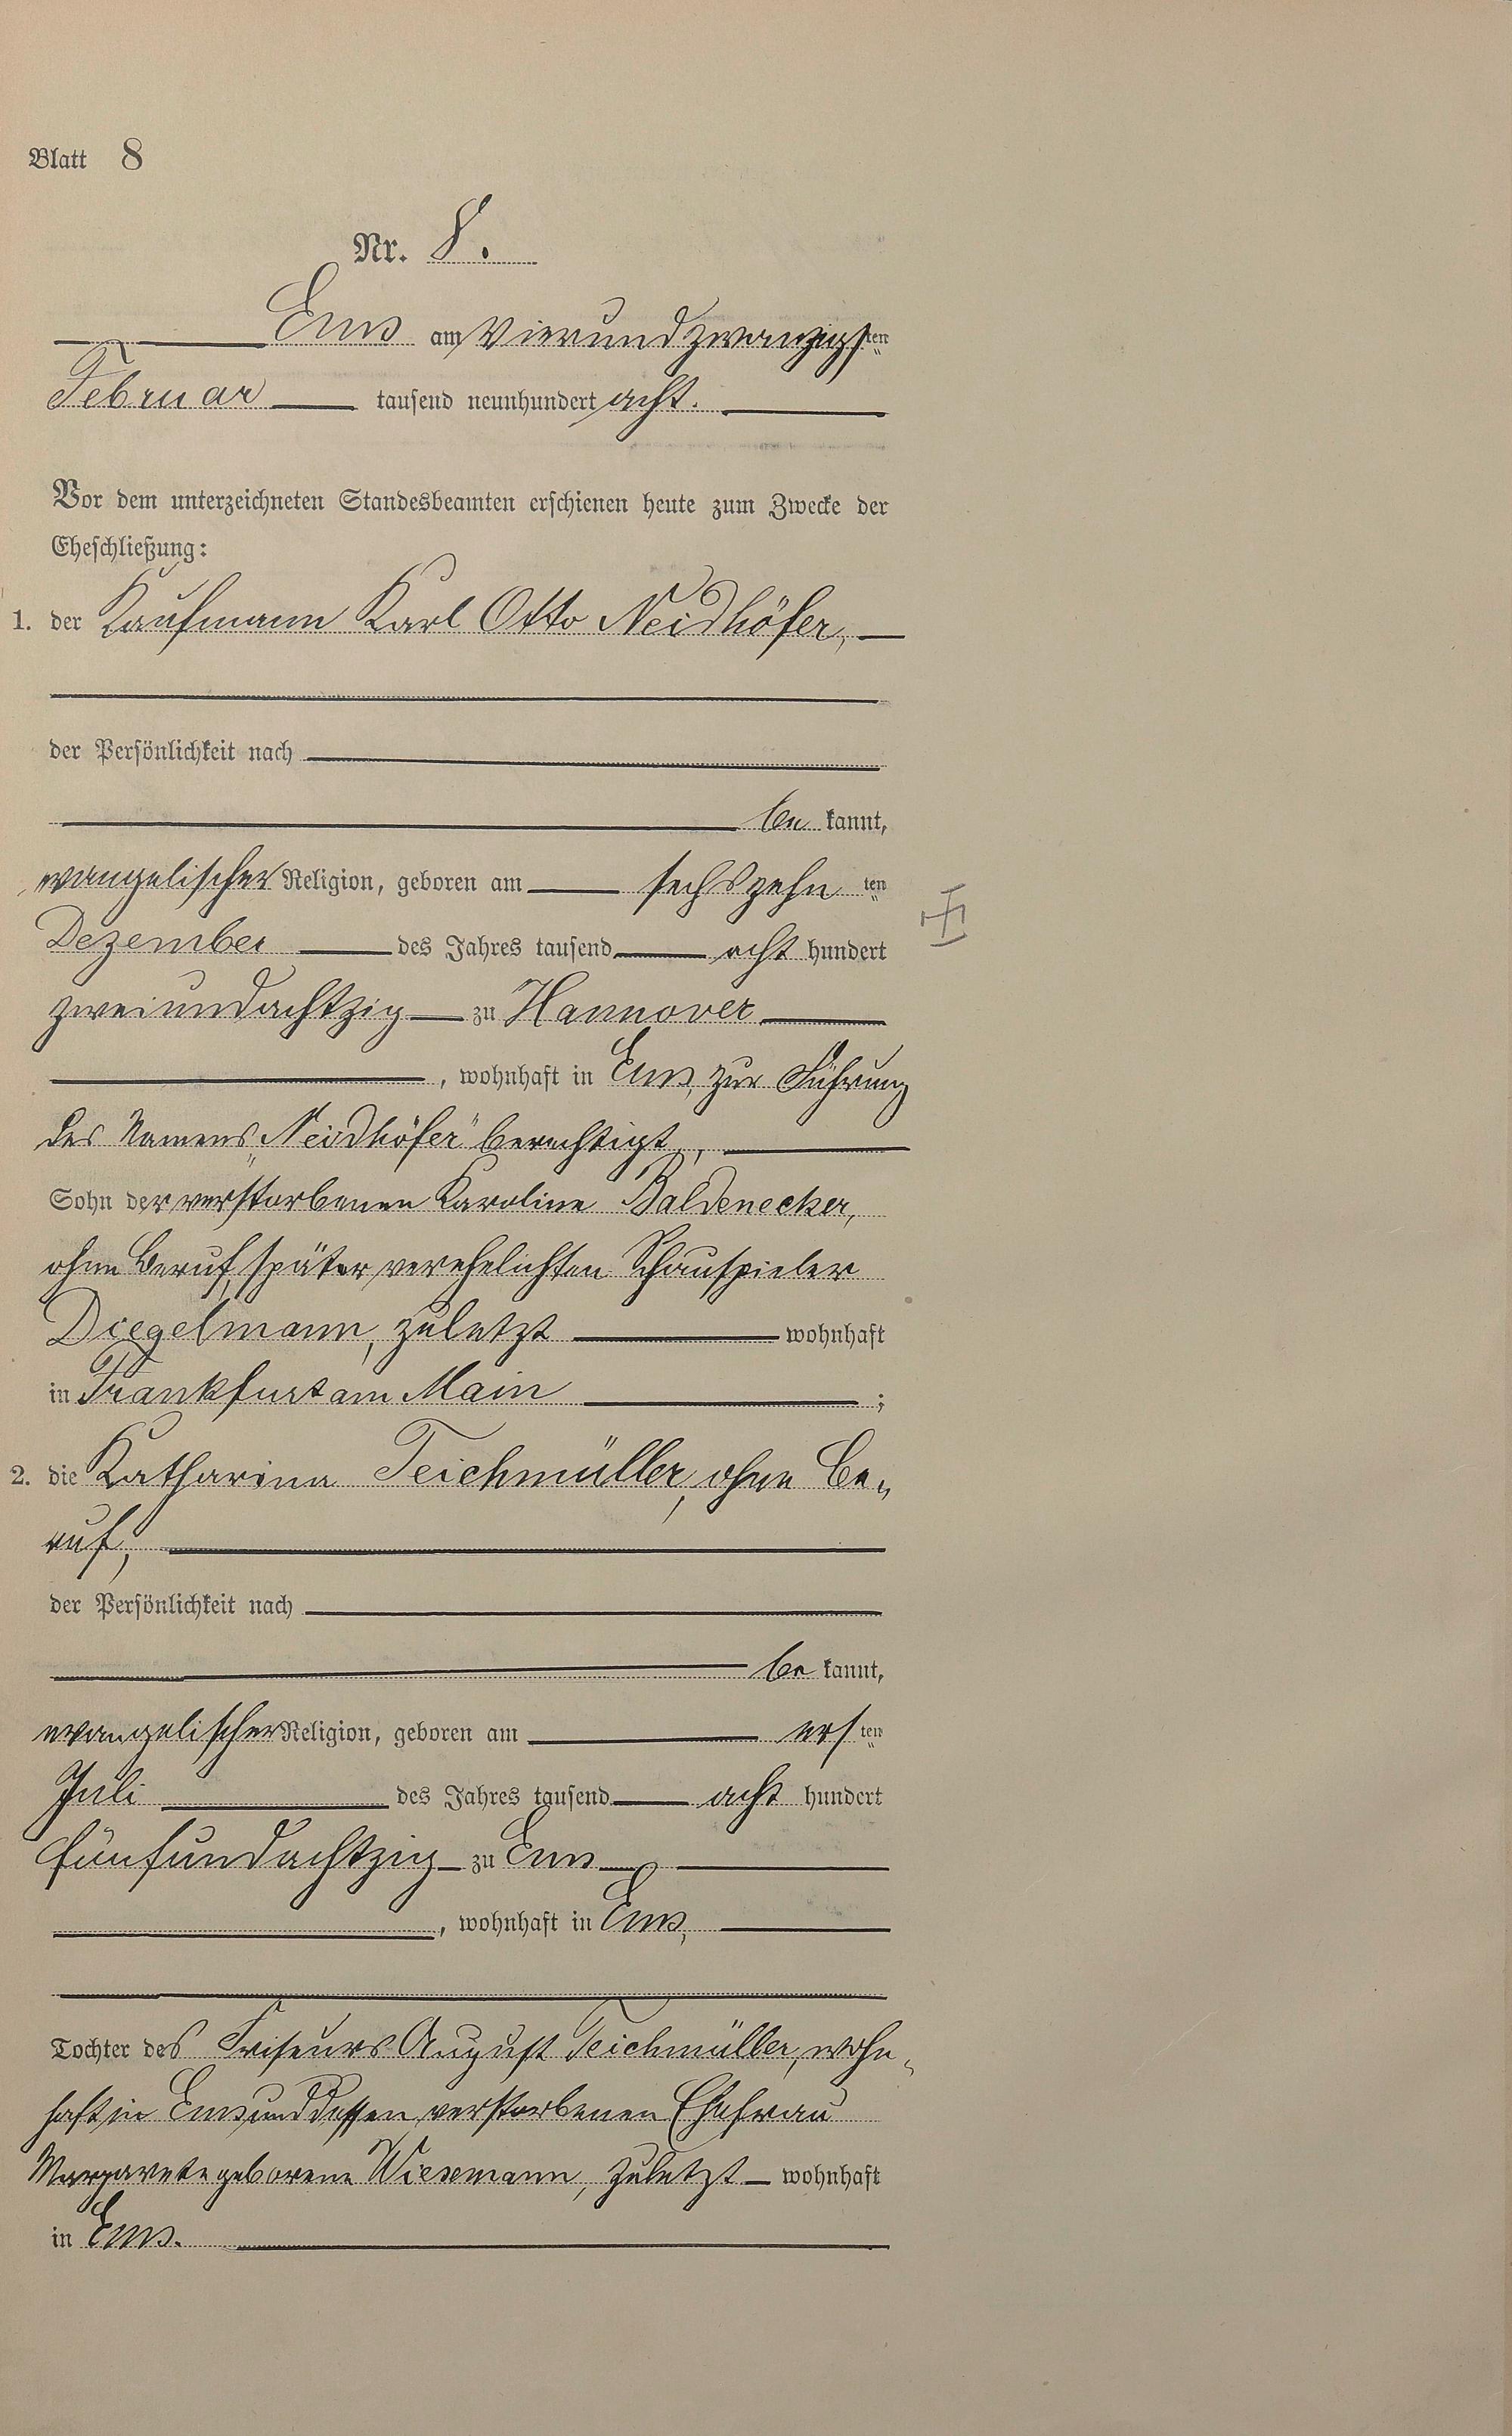 Blatt 8
Nr. 8.
Ems am vierundzwanzigsten
Februar tausend neunhundert acht.
Vor dem unterzeichneten Standesbeamten erschienen heute zum Zwecke der
Eheschließung:
1. der Kaufmann Karl Otto Neidhöfer,
der Persönlichkeit nach
be kannt,
evangelischer Religion, geboren am sechszehn ten
Dezember des Jahres tausend acht hundert
zweiundachtzig zu Hannover
, wohnhaft in Ems, zur Führung
des Namens „Neidhöfer" berechtigt,
Sohn der verstorbenen Karoline Baldenecker,
ohne Beruf, später verehelichten Schauspieler
Diegelmann, zuletzt wohnhaft
in Frankfurt am Main ;
2. die Katharina Teichmüller, ohne Be„
ruf,
der Persönlichkeit nach
be kannt,
evangelischer Religion, geboren am ers ten
Juli des Jahres tausend acht hundert
fünfundachtzig zu Ems
, wohnhaft in Ems,
Tochter des Friseurs August Teichmüller, wohn„
haft in Ems und dessen verstorbenen Ehefrau
Margarete geborene Wiesemann, zuletzt wohnhaft
in Ems.